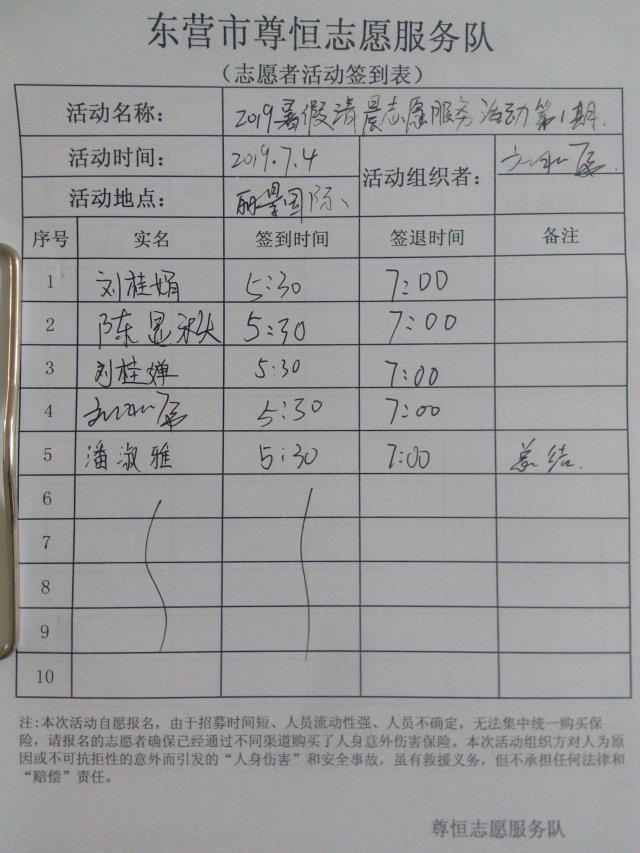 东营市尊恒志愿服务队
(志愿者活动签到表)
活动名称: 2019暑假清晨志愿服务活动第1期.
活动时间: 2019.7.4 活动组织者:
活动地点: 丽景国际、
序号 实名 签到时间 签退时间 备注
1 刘桂娟 5:30 7:00
2 陈显秋 5:30 7:00
3 刘桂婵 5:30 7:00
4 5:30 7:00
5 潘淑雅 5:30 7:00 总结.
6
7
8
9
10
注:本次活动自愿报名，由于招募时间短、人员流动性强、人员不确定，无法集中统一购买保
险，请报名的志愿者确保已经通过不同渠道购买了人身意外伤害保险。本次活动组织方对人为原
因或不可抗拒性的意外而引发的“人身伤害”和安全事故，虽有救援义务，但不承担任何法律和
“赔偿”责任。
尊恒志愿服务队